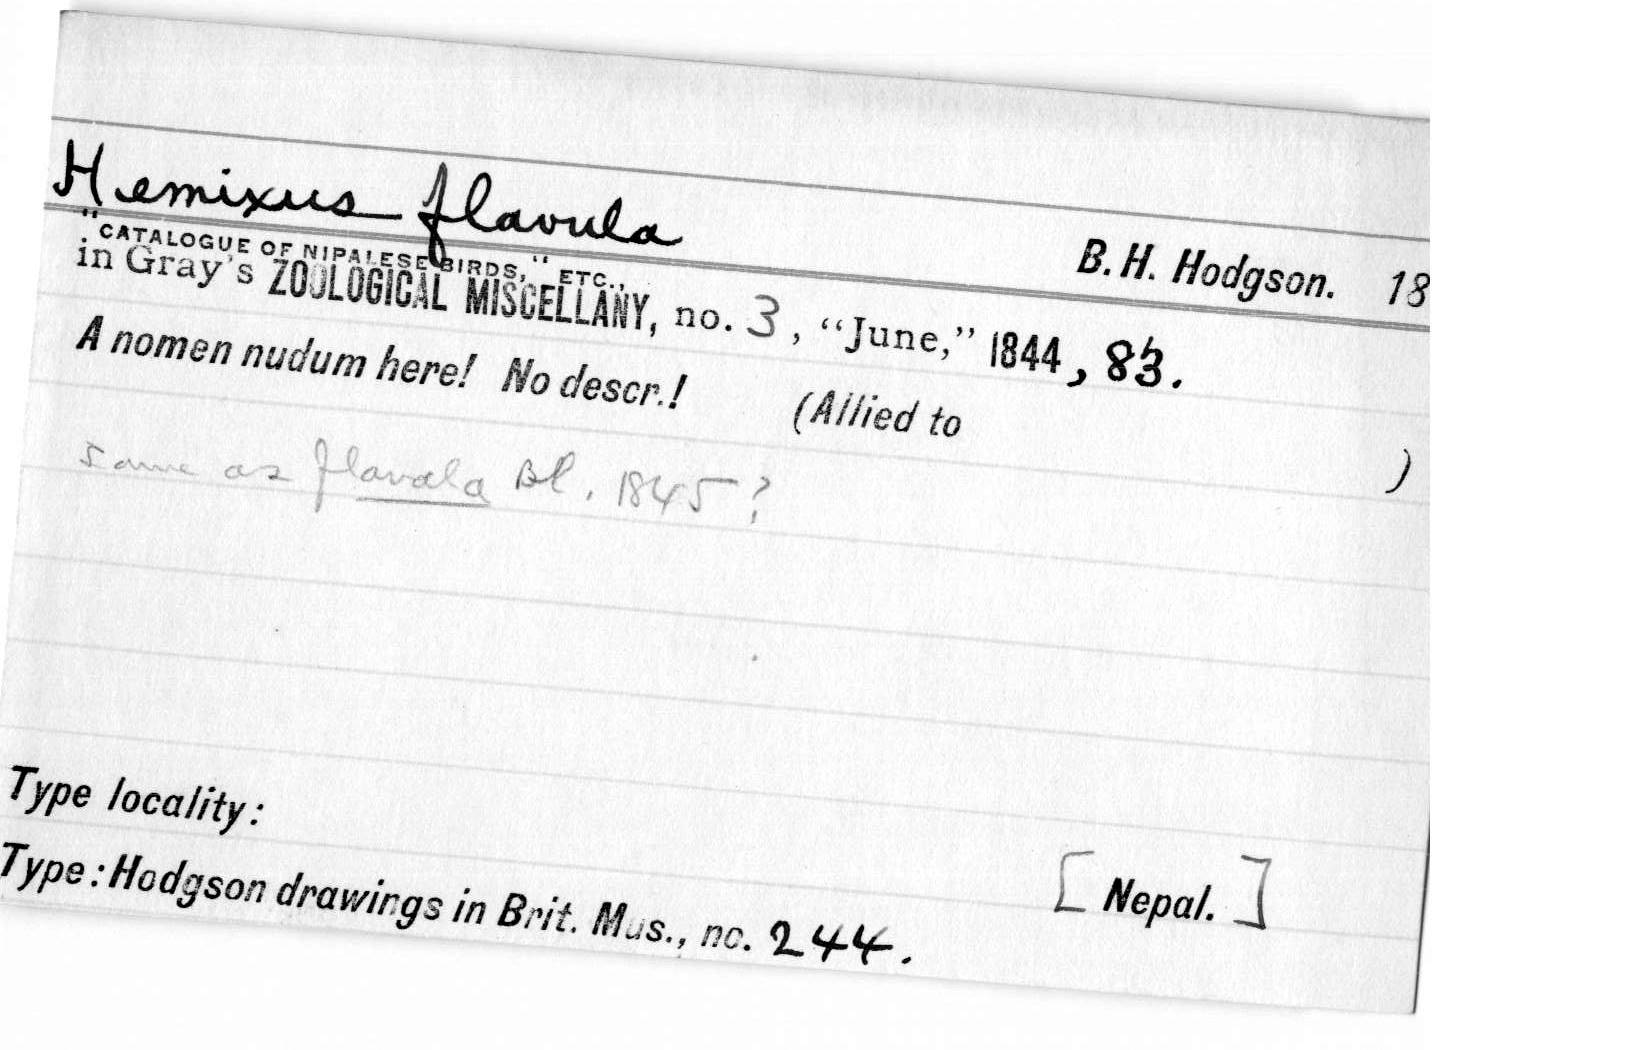 Hemixus flavula
B. H. Hodgson. 18
"CATALOGUE OF NIPALESE BIRDS," ETC.,
in Gray's ZOOLOGICAL MISCELLANY, no. 3, "June," 1844, 83.
A nomen nudum here! No descr.! (Allied to )
same as flavala Bl. 1845?
Type locality: [Nepal.]
Type: Hodgson drawings in Brit. Mus., no. 244.